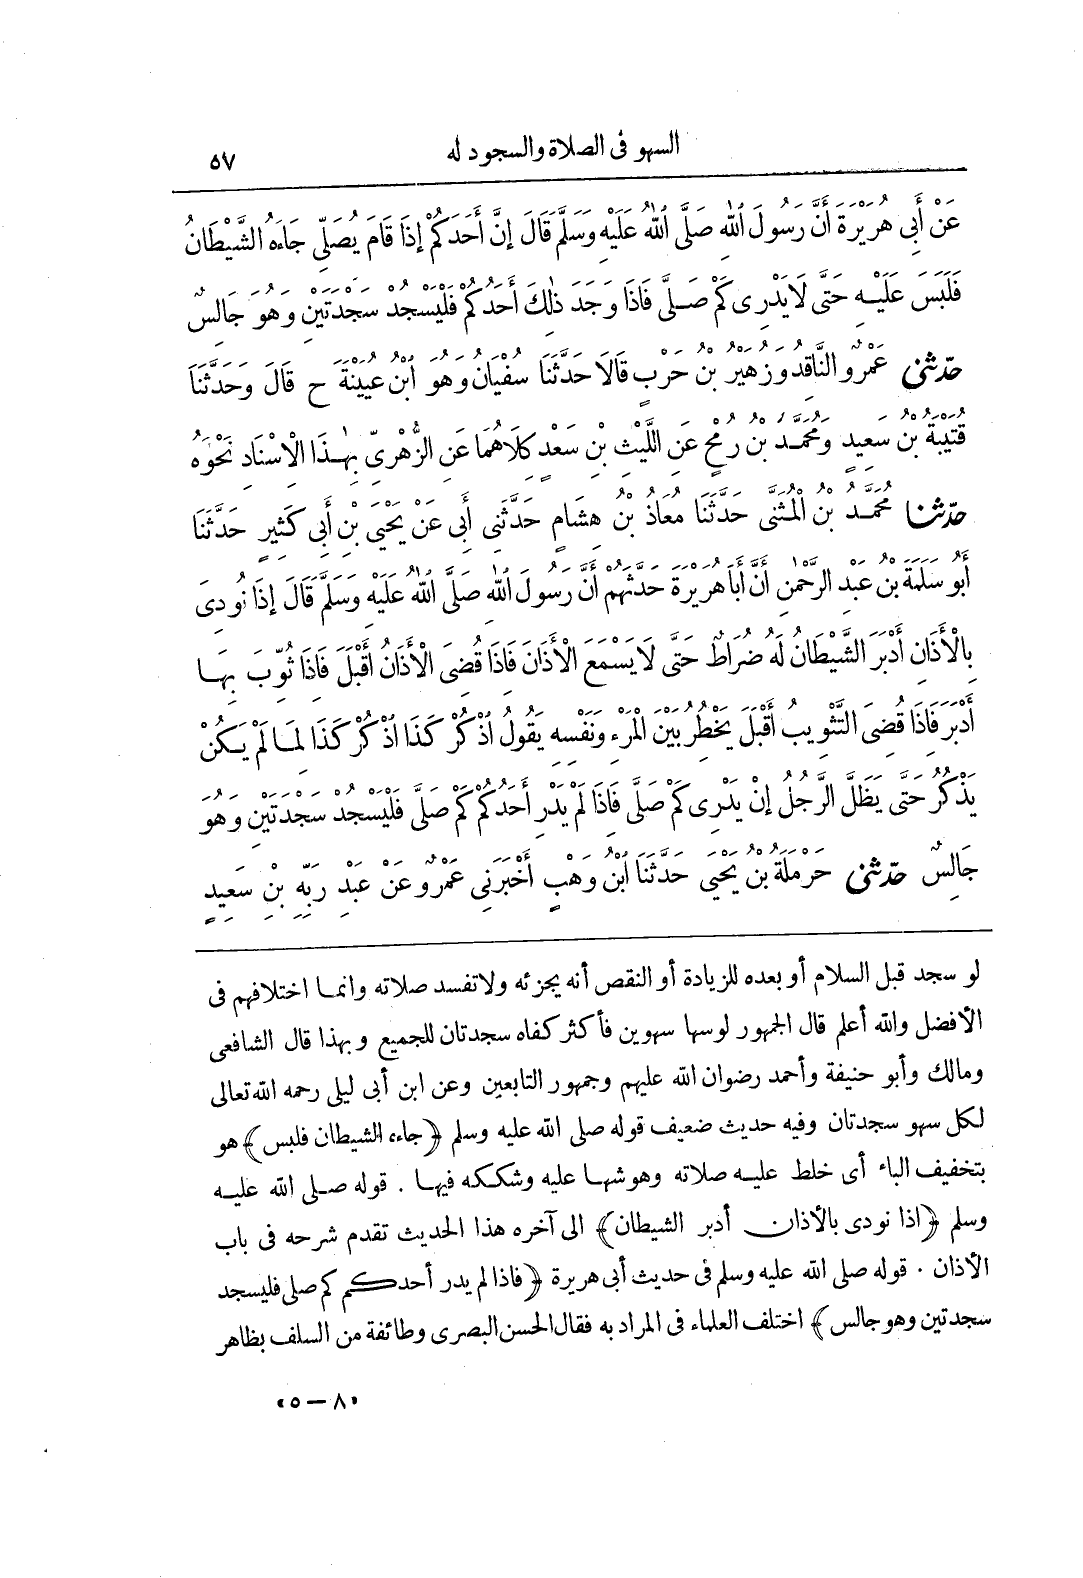 السهو فى الصلاة والسجود له ٥٧
عَنْ أَبِى هُرَيْرَةَ أَنَّ رَسُولَ اللّٰهِ صَلَّى اللّٰهُ عَلَيْهِ وَسَلَّمَ قَالَ إِنَّ أَحَدَكُمْ إِذَا قَامَ يُصَلِّى جَاءَهُ الشَّيْطَانُ
فَلَبَسَ عَلَيْهِ حَتَّى لَا يَدْرِى كَمْ صَلَّى فَاذَا وَجَدَ ذٰلِكَ أَحَدُكُمْ فَلْيَسْجُدْ سَجْدَتَيْنِ وَهُوَ جَالِسٌ
حدّثنى عَمْرٌو النَّاقِدُ وَزُهَيْرُ بْنُ حَرْبٍ قَالَا حَدَّثَنَا سُفْيَانُ وَهُوَ ابْنُ عُيَيْنَةَ ح قَالَ وَحَدَّثَنَا
قُتَيْبَةُ بْنُ سَعِيدٍ وَمُحَمَّدُ بْنُ رُمْحٍ عَنِ اللَّيْثِ بْنِ سَعْدٍ كِلَاهُمَا عَنِ الزُّهْرِىِّ بِهٰذَا الْاِسْنَادِ نَحْوَهُ
حدّثنا مُحَمَّدُ بْنُ الْمُثَنَّى حَدَّثَنَا مُعَاذُ بْنُ هِشَامٍ حَدَّثَنِى أَبِى عَنْ يَحْيَى بْنِ أَبِى كَثِيرٍ حَدَّثَنَا
أَبُو سَلَمَةَ بْنُ عَبْدِ الرَّحْمٰنِ أَنَّ أَبَا هُرَيْرَةَ حَدَّثَهُمْ أَنَّ رَسُولَ اللّٰهِ صَلَّى اللّٰهُ عَلَيْهِ وَسَلَّمَ قَالَ إِذَا نُودِىَ
بِالْأَذَانِ أَدْبَرَ الشَّيْطَانُ لَهُ ضُرَاطٌ حَتَّى لَا يَسْمَعَ الْأَذَانَ فَاذَا قُضِىَ الْأَذَانُ أَقْبَلَ فَاذَا ثُوِّبَ بِهَا
أَدْبَرَ فَاذَا قُضِىَ التَّثْوِيبُ أَقْبَلَ يَخْطُرُ بَيْنَ الْمَرْءِ وَنَفْسِهِ يَقُولُ اُذْكُرْ كَذَا اُذْكُرْ كَذَا لِمَا لَمْ يَكُنْ
يَذْكُرُ حَتَّى يَظَلَّ الرَّجُلُ إِنْ يَدْرِى كَمْ صَلَّى فَاذَا لَمْ يَدْرِ أَحَدُكُمْ كَمْ صَلَّى فَلْيَسْجُدْ سَجْدَتَيْنِ وَهُوَ
جَالِسٌ حدّثنى حَرْمَلَةُ بْنُ يَحْيَى حَدَّثَنَا ابْنُ وَهْبٍ أَخْبَرَنِى عَمْرٌو عَنْ عَبْدِ رَبِّهِ بْنِ سَعِيدٍ
لو سجد قبل السلام أو بعده للزيادة أو النقص أنه يجزئه ولا تفسد صلاته وانما اختلافهم فى
الأفضل والله أعلم قال الجمهور لو سها سهوين فأكثر كفاه سجدتان للجميع وبهذا قال الشافعى
ومالك وأبو حنيفة وأحمد رضوان الله عليهم وجمهور التابعين وعن ابن أبى ليلى رحمه الله تعالى
لكل سهو سجدتان وفيه حديث ضعيف قوله صلى الله عليه وسلم ﴿جاءه الشيطان فلبس﴾ هو
بتخفيف الباء أى خلط عليه صلاته وهوشها عليه وشككه فيها . قوله صلى الله عليه
وسلم ﴿اذا نودى بالأذان أدبر الشيطان﴾ الى آخره هذا الحديث تقدم شرحه فى باب
الأذان . قوله صلى الله عليه وسلم فى حديث أبى هريرة ﴿فاذا لم يدر أحدكم كم صلى فليسجد
سجدتين وهو جالس﴾ اختلف العلماء فى المراد به فقال الحسن البصرى وطائفة من السلف بظاهر
«٨ — ٥»